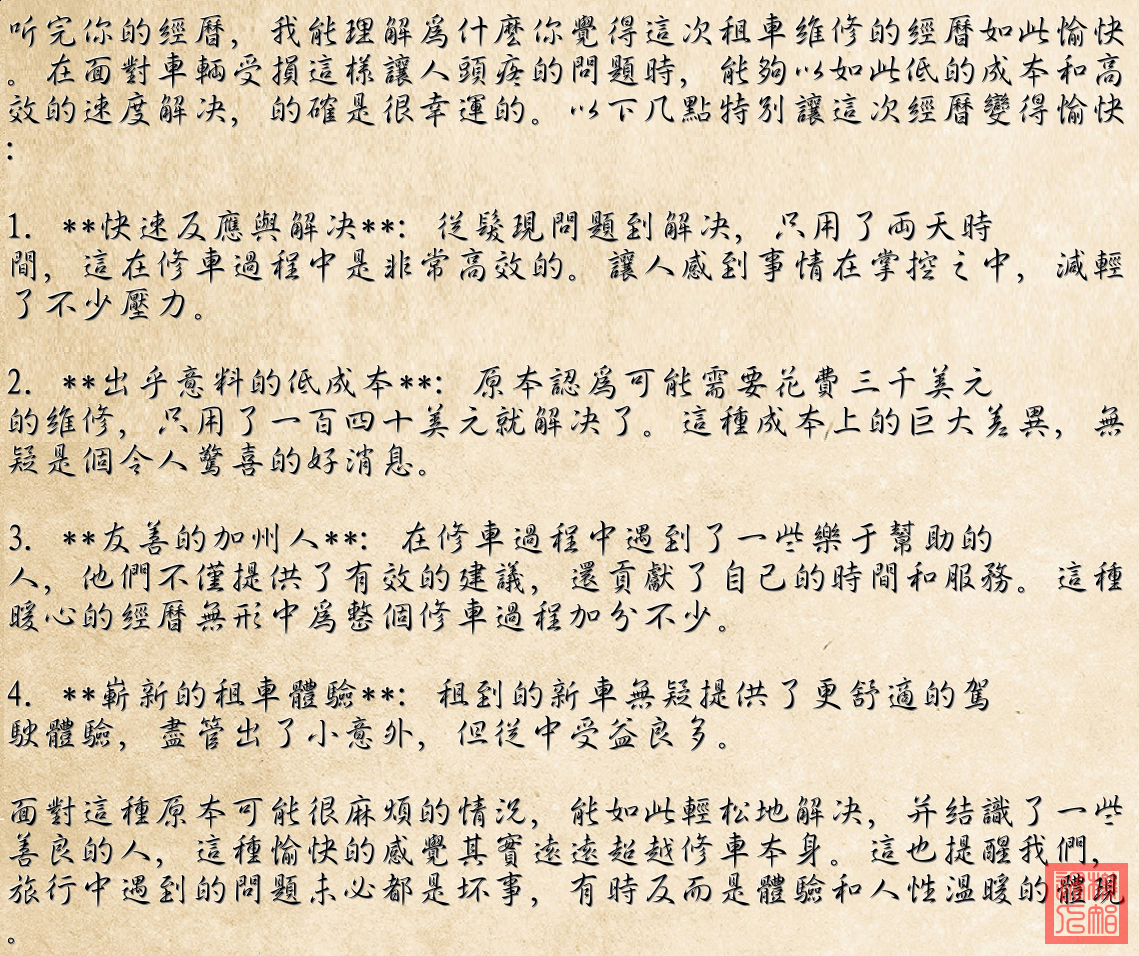 听完你的經曆，我能理解爲什麽你覺得這次租車維修的經曆如此愉快
。在面對車輛受損這樣讓人頭疼的問題時，能夠以如此低的成本和高
效的速度解决，的確是很幸運的。以下几點特別讓這次經曆變得愉快
：
1. **快速反應與解决**：從髮現問題到解决，只用了両天時
間，這在修車過程中是非常高效的。讓人感到事情在掌控之中，減輕
了不少壓力。
2. **出乎意料的低成本**：原本認爲可能需要花費三千美元
的維修，只用了一百四十美元就解决了。這種成本上的巨大差異，無
疑是個令人驚喜的好消息。
3. **友善的加州人**：在修車過程中遇到了一些樂于幫助的
人，他們不僅提供了有效的建議，還貢獻了自己的時間和服務。這種
暖心的經曆無形中爲整個修車過程加分不少。
4. **嶄新的租車體驗**：租到的新車無疑提供了更舒適的駕
駛體驗，盡管出了小意外，但從中受益良多。
面對這種原本可能很麻煩的情況，能如此輕松地解决，并结識了一些
善良的人，這種愉快的感覺其實遠遠超越修車本身。這也提醒我們，
旅行中遇到的問題未必都是坏事，有時反而是體驗和人性溫暖的體現
。